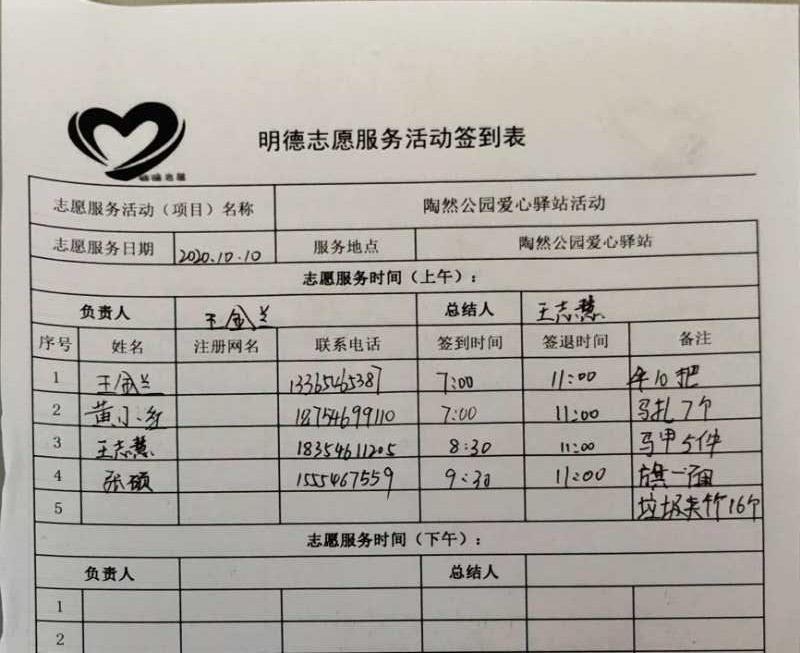 明德志愿服务活动签到表
志愿服务活动（项目）名称 陶然公园爱心驿站活动
志愿服务日期 2020.10.10 服务地点 陶然公园爱心驿站
志愿服务时间（上午）：
负责人 王金兰 总结人 王志慧
序号 姓名 注册网名 联系电话 签到时间 签退时间 备注
1 王金兰 13365465387 7:00 11:00 伞10把
2 黄小红 18754699110 7:00 11:00 马扎7个
3 王志慧 18354611205 8:30 11:00 马甲5件
4 张硕 1555467559 9:30 11:00 旗一面
5 垃圾夹 16个
志愿服务时间（下午）：
负责人 总结人
1
2